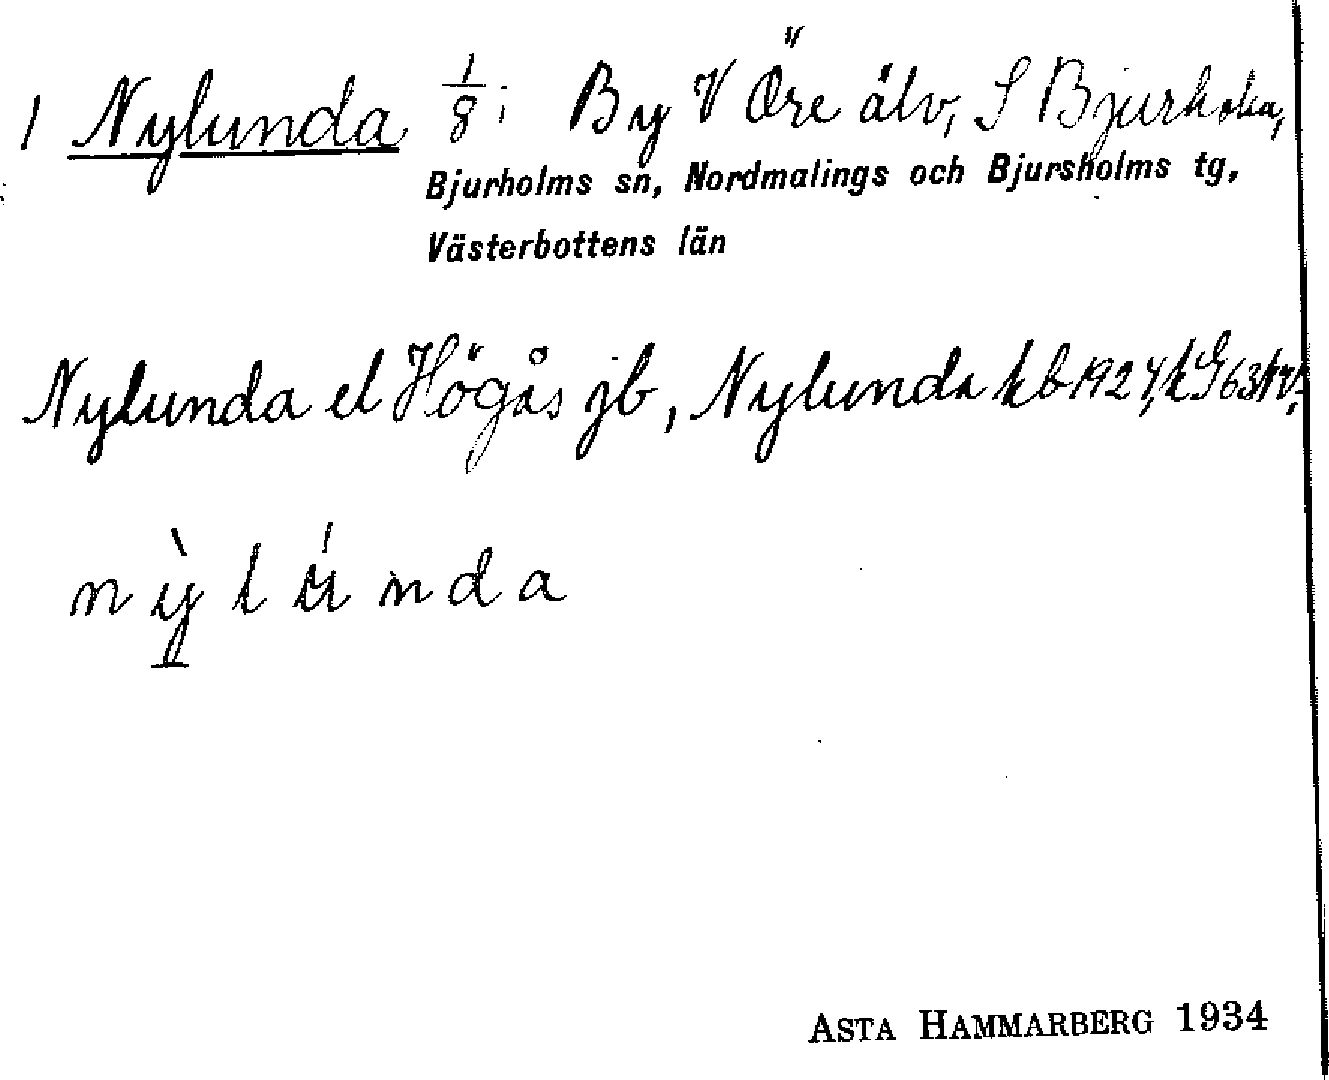 1 Nylunda 1/8; By V Öre älv, S Bjurholm,
Bjurholms sn, Nordmalings och Bjursholms tg,
Västerbottens län
Nylunda el Högås jb, Nylunda kb 1927,
nỳlúnda
ASTA HAMMARBERG 1934